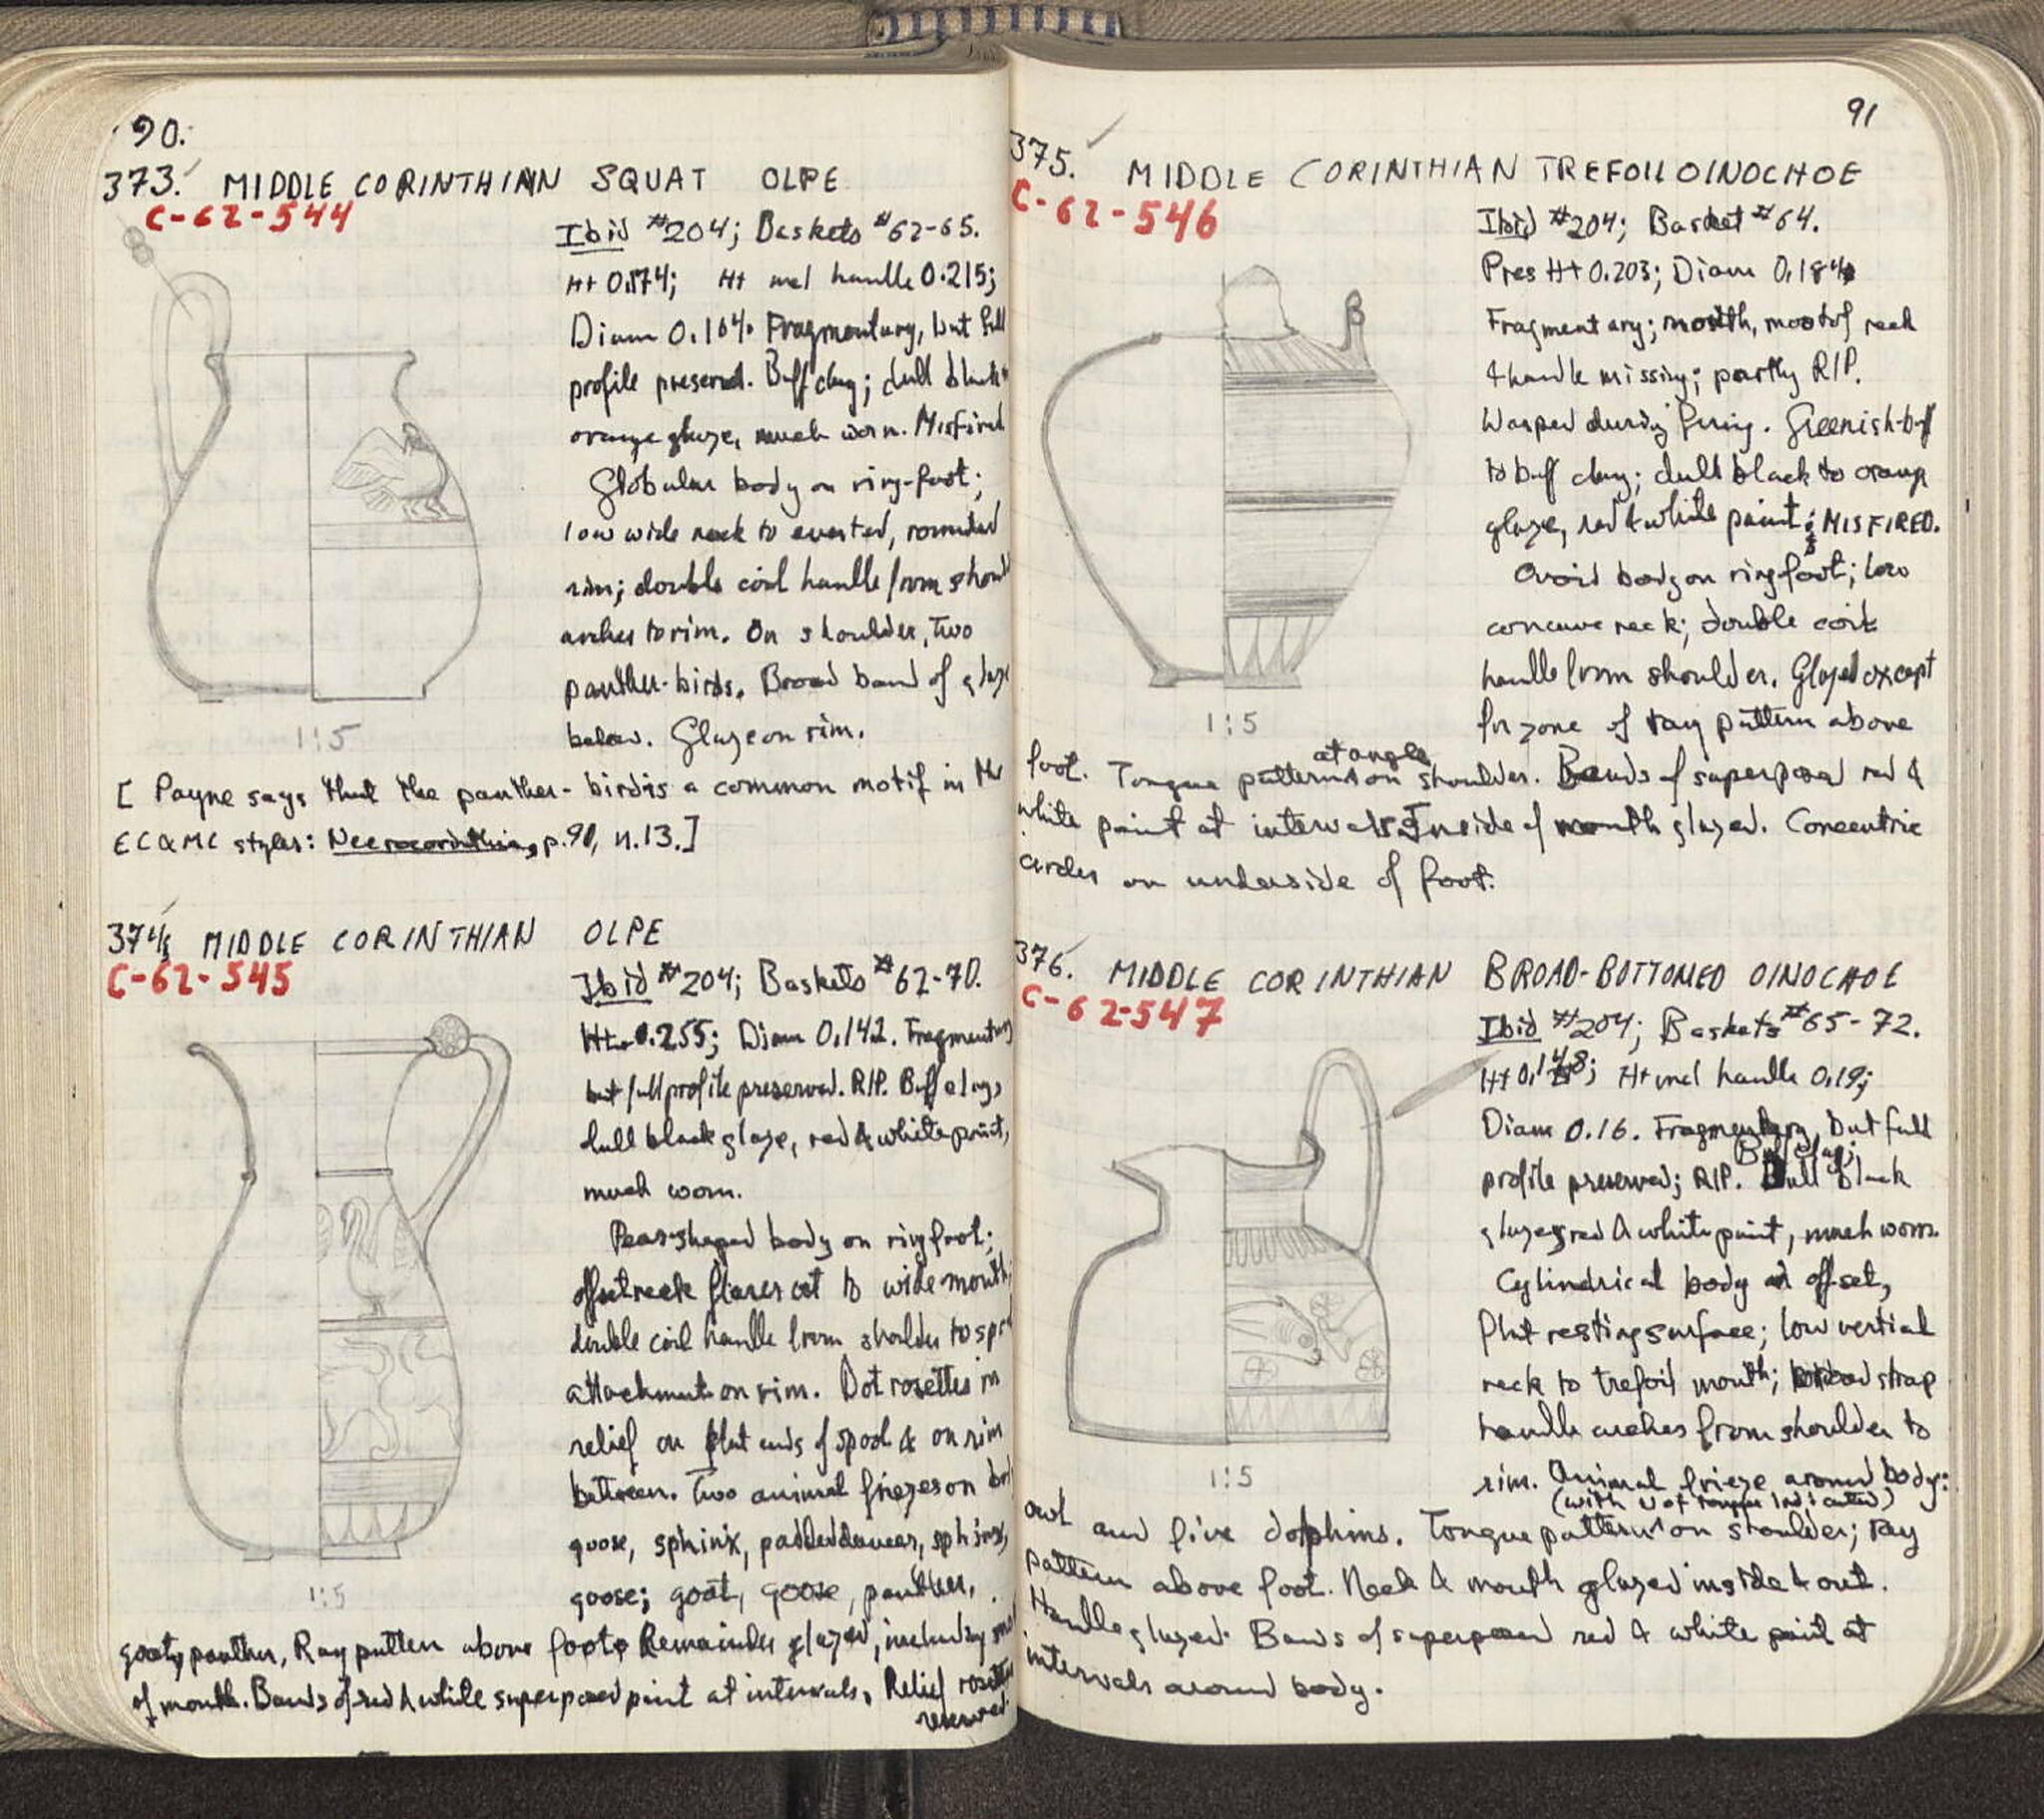 90.
373. MIDDLE CORINTHIAN SQUAT OLPE
C-62-544
Ibid #204; Baskets #62-65.
Ht 0.174; Ht incl handle 0.215;
Diam 0.164. Fragmentary, but full
profile preserved. Buff clay; dull black
orange glaze, much worn. Misfired
Globular body on ring-foot;
low wide neck to everted, rounded
rim; double coil handle from should
arches to rim. On shoulder, two
panther-birds. Broad band of glaze
below. Glaze on rim.
1:5
[ Payne says that the panther-bird is a common motif in the
EC & MC styles: Necrocorinthia, p.90, n.13.]
374. MIDDLE CORINTHIAN OLPE
C-62-545
Ibid #204; Baskets #62-70.
Ht. 0.255; Diam 0.142. Fragmentary
but full profile preserved. RIP. Buff clay;
dull black glaze, red & white paint,
much worn.
Pear-shaped body on ring foot;
offset neck flares out to wide mouth;
double coil handle from shoulder to spool
attachment on rim. Dot rosettes in
relief on flat ends of spool & on rim
between. Two animal friezes on bod
goose, sphinx, padded dancer, sphinx,
goose; goat, goose, panther,
1:5
goat, panther, Ray pattern above foot. Remainder glazed, including
of mouth. Bands of red & white superposed paint at intervals. Relief rosettes
reserved.
91
375. MIDDLE CORINTHIAN TREFOIL OINOCHOE
C-62-546
Ibid #204; Basket #64.
Pres Ht 0.203; Diam 0.184
Fragmentary; mouth, most of neck
& handle missing; partly RIP.
Warped during firing. Greenish-buff
to buff clay; dull black to orange
glaze, red & white paint; MISFIRED.
Ovoid body on ring foot; low
concave neck; double coil
handle from shoulder. Glazed except
for zone of ray pattern above
1:5
at angle
foot. Tongue pattern on shoulder. Bands of superposed red &
white paint at intervals. Inside of mouth glazed. Concentric
circles on underside of foot.
376. MIDDLE CORINTHIAN BROAD-BOTTOMED OINOCHOE
C-62-547
Ibid #204; Baskets #65-72.
Ht 0.148; Ht incl handle 0.19;
Diam 0.16. Fragmentary, but full
Buff clay;
profile preserved; RIP. Dull black
glaze, red & white paint, much worn.
Cylindrical body on offset,
flat resting surface; low vertical
neck to trefoil mouth; broad strap
handle arches from shoulder to
rim. Animal frieze around body:
1:5
(with U of tongue indicated)
owl and five dolphins. Tongue pattern on shoulder; ray
pattern above foot. Neck & mouth glazed inside & out.
Handle glazed. Bands of superposed red & white paint at
intervals around body.